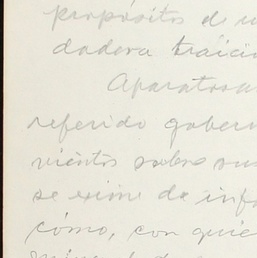 propósitos d
dadora traici
Aparatosa
referido gobern
vientos sobre su
se exime de info
cómo, con quié